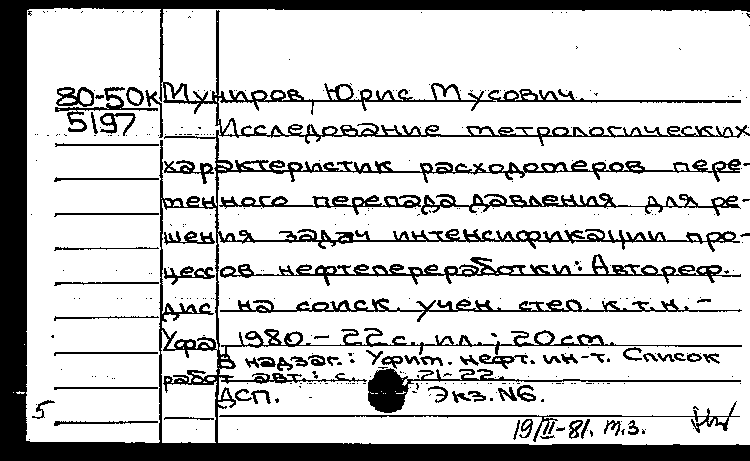 80-50к Муниров, Юрис Мусович.
5197 Исследование метрологических
характеристик расходомеров пере-
менного перепада давления для ре-
шения задач интенсификации про-
цессов нефтепереработки: Автореф.
дис на соиск. учен. степ. к.т.н. -
Уфа, 1980. - 22 с., ил.; 20 см.
В надзаг.: Уфим. нефт. ин-т. Список
работ авт.: с. 21-22.
ДСП. Экз. №6.
5
19/II-81. т.з.